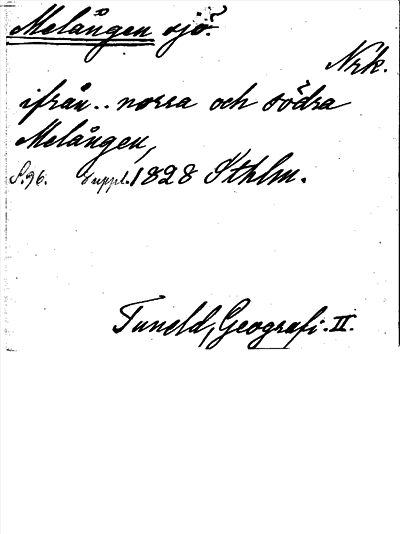 Melången sjö.
Nrk.
ifrån.. norra och södra
Melången,
S.96. Suppl. 1828 Sthlm.
Tuneld, Geografi. II.